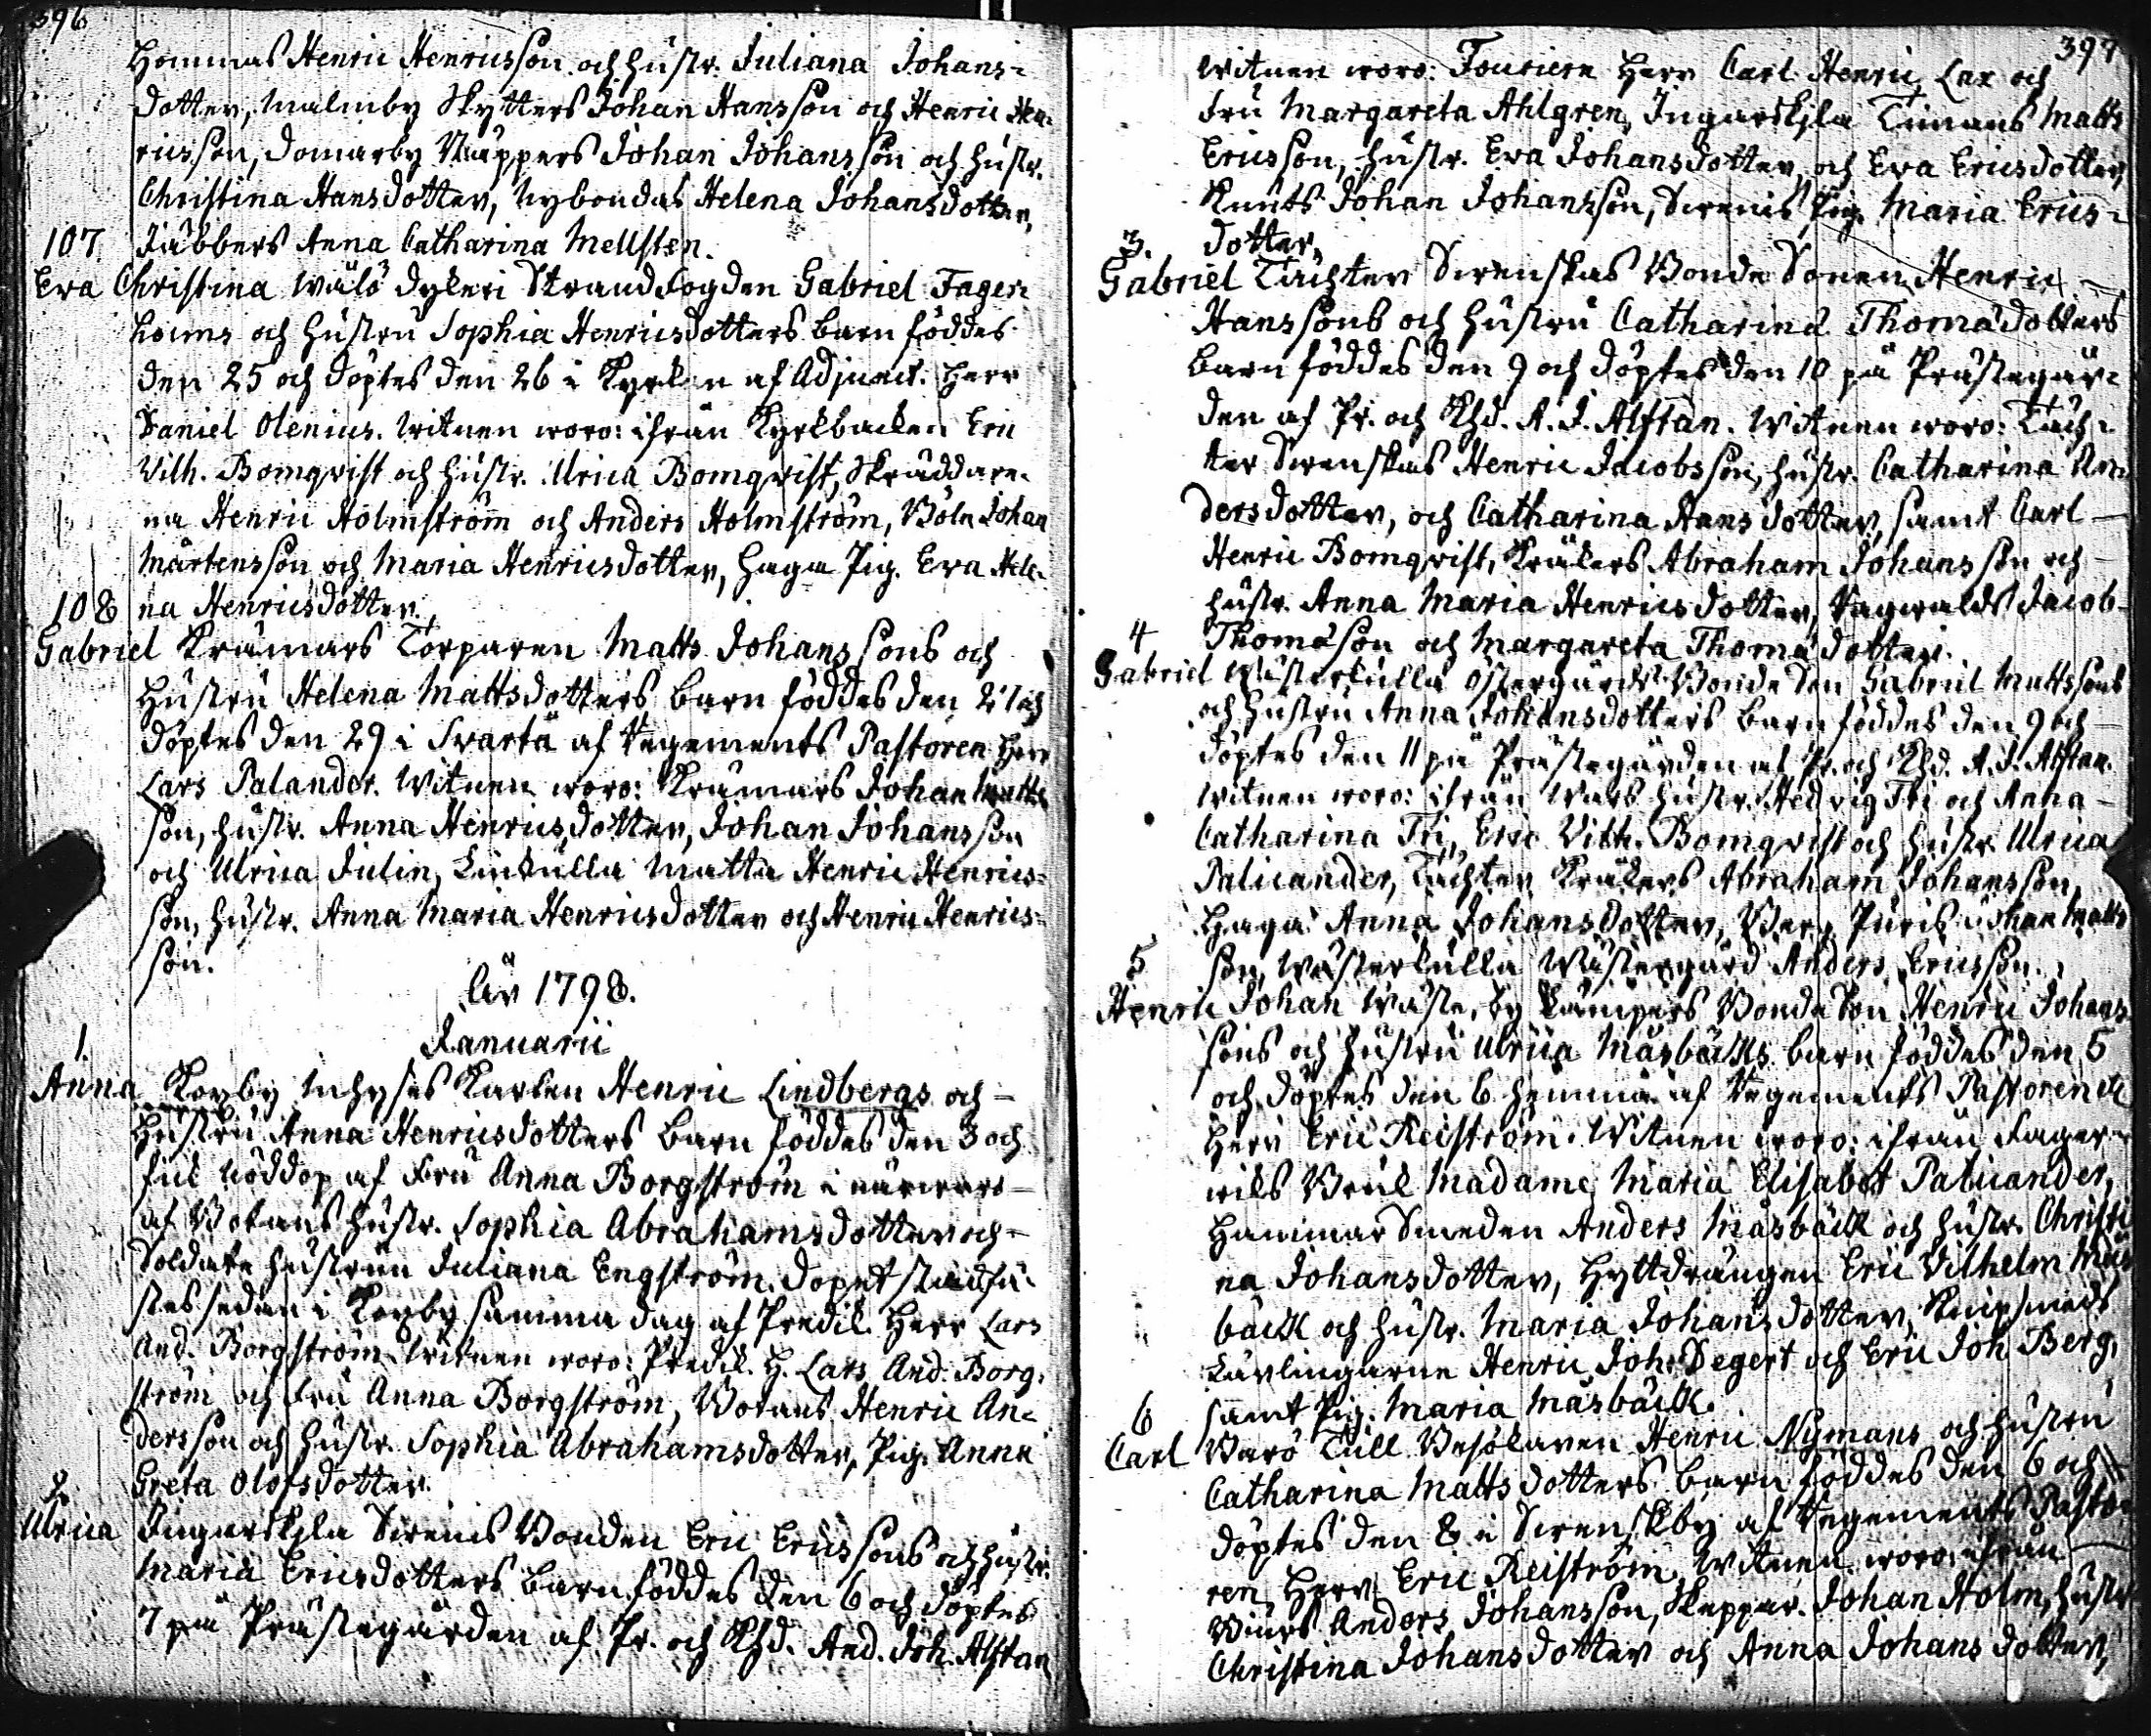 396
Hommas Henric Henricsson och hustr. Juliana Johans-
dotter, Malmby Skytters Johan Hansson och Henric Hen-
ricsson, Domarby Näppers Johan Johansson och hustr.
Christina Hansdotter, Nybondas Helena Johansdotter,
107. Jäbbers Anna Catharina Mellsten.
Eva Christina Wålö Dykeri Strandfogden Gabriel Fager-
holms och hustru Sophia Henricsdotters barn föddes
den 25 och döptes den 26 i Kyrkan af Adjunct. Herr
Daniel Olenius. Witnen woro: ifrån Kyrkbacken Eric
Vilh. Bomqvist och hustr. Ulrica Bomqvist, Skräddare-
na Henric Holmström och Anders Holmström, Böle Johan
Mårtensson och Maria Henricsdotter, Haga Pig. Eva Hele-
108 na Henricsdotter.
Gabriel Krämars Torparen Matts Johanssons och
Hustru Helena Mattsdotters barn föddes den 27 och
döptes den 29 i Svartå af Regements Pastoren Herr
Lars Palander. Witnen woro: Krämars Johan Matts
son, hustr. Anna Henricsdotter, Johan Johansson
och Ulrica Julin, Linkulla Matta Henric Henrics-
son, hustr. Anna Maria Henricsdotter och Henric Henrics-
son.
År 1798.
Januarii
1.
Anna Korby Inhyses Karlen Henric Lindbergs och
Hustru Anna Henricsdotters barn föddes den 3 och
fick nöddop af Fru Anna Borgström i närwaro
af Botans hustr. Sophia Abrahamsdotter och
Soldate hustrun Juliana Engström, dopet stadfä-
stes sedan i Korby samma dag af Predik. Herr Lars
And. Borgström. Witnen woro: Predik. H. Lars And. Borg-
ström och Fru Anna Borgström, Botans Henric An-
dersson och hustr. Sophia Abrahamsdotter, Pig. Anna
2. Greta Olofsdotter.
Ulrica Ingarskila Swens Bonden Eric Ericssons och hustr.
Maria Ericsdotters barn föddes den 6 och döptes
7 på Prästegården af Pr. och Khd. And. Joh. Alftan
397
Witnen woro: Fouriern Herr Carl Henric Lax och
Fru Margareta Ahlgren, Ingarskila Timans Matts
Ericsson, hustr. Eva Johansdotter, och Eva Ericsdotter,
Knuts Johan Johansson, Swens Pig. Maria Erics-
3. dotter.
Gabriel Täckter Swenskas Bonde Sonen Henric
Hanssons och hustru Catharina Thomædotters
barn föddes den 9 och döptes den 10 på Prästegår-
den af Pr. och Khd. A. J. Alftan. Witnen woro: Täck-
ter Swenskas Henric Jacobsson, hustr. Catharina An-
dersdotter, och Catharina Hansdotter, samt Carl
Henric Bomqvist, Kräkers Abraham Johansson och
hustr. Anna Maria Henricsdotter, Ragwalds Jacob
4 Thomæson och Margareta Thomædotter.
Gabriel Wästerkulla Östergårds Bonde Son Gabriel Mattssons
och hustru Anna Johansdotters barn föddes den 9 och
döptes den 11 på Prästegården af Pr. och Khd. A. J. Alftan.
Witnen woro: ifrån Wars hustr. Hedvig Tri och Anna
Catharina Tri, Eric Vilh. Bomqvist och hustr. Ulrica
Palicander, Täckter Kräkers Abraham Johansson,
Haga Anna Johansdotter, Johan Matts
5 son, Wästerkulla Wästergård Anders Ericsson.
Henric Johan Wäste.by Kämpers Bonde Son Henric Johans
sons och hustru Ulrica Måsbäcks barn föddes den 5
och döptes den 6 hemma af Regements Pastoren
Herr Eric Reiström. Witnen woro: ifrån Fager-
wiks Bruk Madame Maria Elisabet Palicander,
Hammar Smeden Anders Måsbäck och hustr. Christi
na Johansdotter, Hyttdrängen Eric Vilhelm Mås
bäck och hustr. Maria Johansdotter, Knipsmeds
Lärlingarne Henric Joh. Degert och Eric Joh. Berg,
6 samt Pig. Maria Måsbäck.
Carl Barö Tull Besökaren Henric Nymans och hustru
Catharina Mattsdotters barn föddes den 6 och
döptes den 8 i Swenskby af Regements Pasto-
ren Herr Eric Reiström. Witnen woro: ifrån
Anders Johansson, Skeppar. Johan Holm, hustr
Christina Johansdotter och Anna Johansdotter,